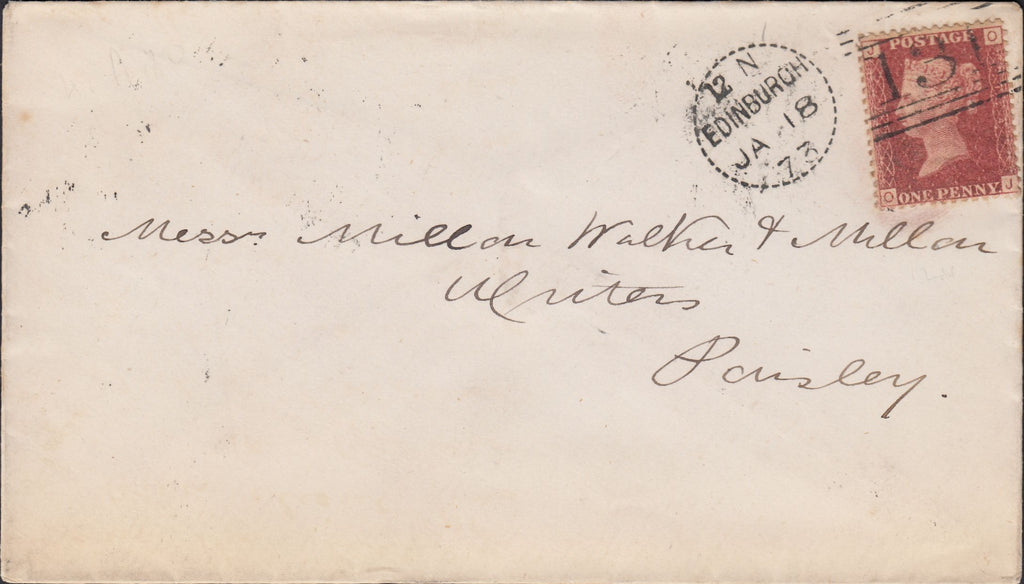 J POSTAGE O
131
O ONE PENNY J
12 N
EDINBURGH
JA 18
73
Messrs Millon Walker & Millon
Writers
Paisley.